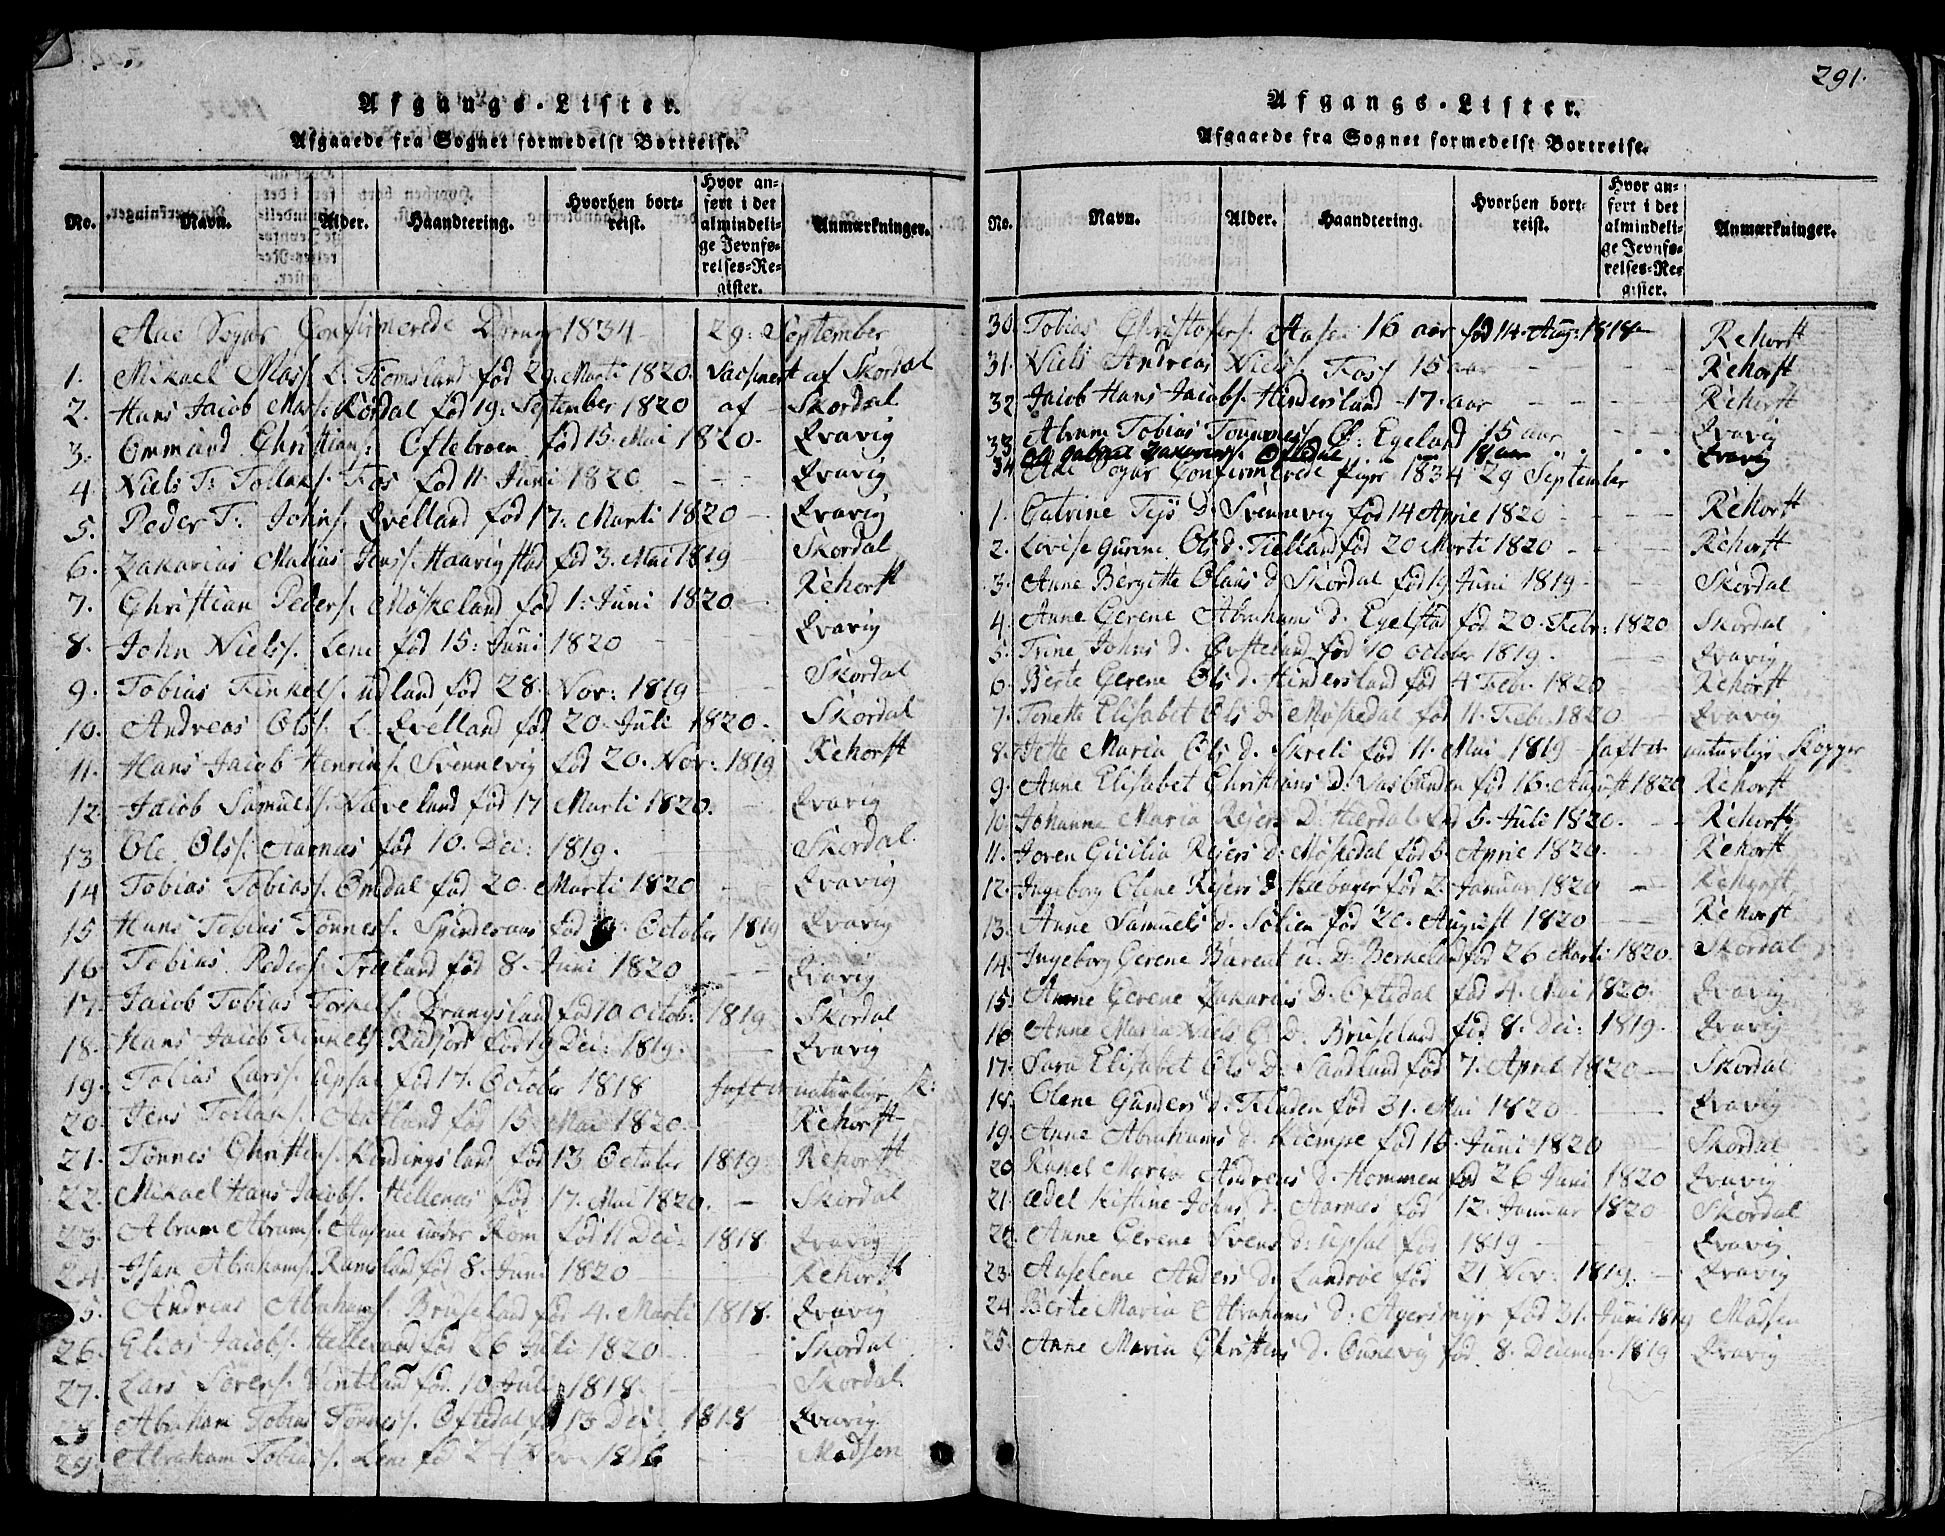 Afgangs-Lister.
Afgaaede fra Sognet formedelst Bortreise.
No. Navn. Alder. Haandtering. Hvorhen bortreist. Hvor anført i det almindelige Jevnførelses-Register. Anmærkninger.
Aae Sogns Confirmerede Drenge 1834 29: September
1. Mikael Mass. L. Tiomsland fød 29. Marti 1820. Vassinert af Skordal
2. Hans Jacob Mass. Rördal fød 19. September 1820 af Skordal
3. Ommund Christians: Oftebroen fød 15. Mai 1820. Evavig
4. Niels T: Tollaks. Fos fød 11 Juni 1820 Evavig
5. Peder T: Johns. Qvelland fød 17. Marti 1820 Evavig
6. Zakarias Matias Jens. Haavigstad fød 3. Mai 1819 Skordal
7. Christian Peders. Møskeland fød 1: Juni 1820 Rehorst
8. John Niels. Lene fød 15: Juni 1820 Evavig
9. Tobias Finkels. udland fød 28. Nov: 1819 Skordal
10. Andreas Ols. L. Qvelland fød 20. Juli 1820. Skordal
11. Hans Jacob Henriks. Svennevig fød 20. Nov: 1819 Rehorst
12. Jacob Samuels. Næveland fød 17 Marti 1820. Evavig
13 Ole Ols. Aarnæs fød 10. Dec: 1819. Skordal
14 Tobias Tobias. Omdal fød 20. Marti 1820 Evavig
15 Hans Tobias Tønnes. Spinderaas fød October 1819 Evavig
16 Tobias Peders. Træland fød 8. Juni 1820 Evavig
17. Jacob Tobias Torkels. Drangsland fød 10 Octob: 1819 Skordal
18. Hans Jacob Finkels. Rødfjord fød 19 Dec: 1819. Evavig
19. Tobias Lars. upsal fød 17. October 1818 haft de naturlige K:
20. Jens Tollaks. Aatland fød 15. Mai 1820. Rehorst
21. Tønnes Christens. Rendingsland fød 13 October 1819 Rehorst
22. Mikael Hans Jacobs. Hellenæs fød 17. Mai 1820. Skordal
23. Abram Abrams. Aasene under Kom fød 11 Dec. 1818 Evavig
24. Isak Abrahams. Ramsland fød 8. Juni 1820 Rehorst
5. Andreas Abrahams. Bruseland fød 4. Marti 1818. Evavig
26. Elias Jacobs. Hellesund fød 26 Juli 1820 Skordal
27. Lars Sørens. Vintland fød. 10 Juli 1818. Skordal
28 Abraham Tobias Tønnes. Oftedal f. 13 Dec. 1818 Evavig
29. Abraham Tobias. Lene fød 24 Nov 1816 Madsen
291.
Afgangs-Lister.
Afgaaede fra Sognet formedelst Bortreise.
No. Navn. Alder. Haandtering. Hvorhen bortreist. Hvor anført i det almindelige Jevnførelses-Register. Anmærkninger.
30. Tobias Christophers. Aasen 16 aar fød 14. Aug: 1818 Rehorst
31. Niels Andreas Niels. Foss 15 aar Rehorst
32 Jacob Hans Jacobs. Hindersland 17. aar Rehorst
33 Abram Tobias Tønnes. Ø: Egeland 15 aar Evavig
34 Ole Gabriel Zakarias. Oftedal 18 aar Evavig
Aae Sogns Confirmerede Piger 1834 29 September
1. Catrine Tejs D. Svennevig fød 14 April 1820 Rehorst
2. Lovise Gurine Ols d. Fielland fød 20 Marti 1820 Rehorst
3. Anne Bergitte Olaus d. Skordal fød 19 Juni 1819 Skordal
4. Anne Gerene Abrahams d. Egelstad fød 20. Febr: 1820 Skordal
5. Trine Johns d. Øvsteland fød 10 October 1819. Evavig
6. Berte Gerene Ols d. Hindersland fød 4 Febr. 1820 Rehorst
7. Tonette Elisabet Ols d. Møskedal fød 11. Febr. 1820 Evavig
8. Jette Maria Ols d. Skreli fød 11. Mai 1819 haft de naturlige Kopper
9. Anne Elisabet Christians D: Vasbunden fød 16: August 1820 Rehorst
10 Johanne Maria Rejers D. Hierdal fød 5. Juli 1820. Rehorst
11. Joren Cicilia Rejers d: Møskedal fød 5. April 1820. Rehorst
12. Ingeborg Olene Rejers d. fød 2. Januar 1820 Rehorst
13. Anne Samuels d. Solien fød 20. August 1820 Rehorst
14. Ingeborg Gerene Barent u. D. Berneland fød 26 Marti 1820. Skordal
15: Anne Gerene Zakarias D. Oftedal fød 4. Mai 1820. Evavig
16 Anne Maria Niels D. Bruseland fød 8. Dec: 1819. Evavig
17. Sara Elisabet Ols D. Saadland fød 7. April 1820 Skordal
18. Olene Gunders d. Finden fød 31. Mai 1820 Evavig
19. Anne Abrahams d. Kiempe fød 16. Juni 1820 Skordal
20. Rakel Maria Andreas d. Hommen fød 26 Juni 1820 Evavig
21. Adel Kistine Johns d. Aarnæs fød 12. Januar 1820 Skordal
22. Anne Gerene Svens d. upsal fød 1819 Evavig.
23. Aaselene Anders d. Landrøe fød 21 Nov: 1819. Evavig
24. Berte Maria Abrahams d. Agersmyr fød 31. Juni 1819 Madsen
25. Anne Maria Christens d. Ounevig fød 8. Decemb. 1819 Evavig